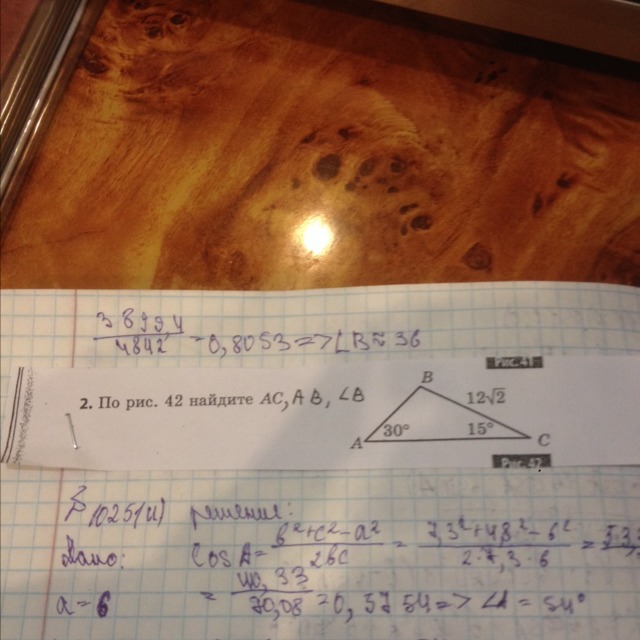 38994/4842 = 0,8053 => ∠B ≈ 36
Рис. 41
2. По рис. 42 найдите AC, AB, ∠B
B
12√2
30°
15°
A
C
Рис. 42
1025(и) решение:
Дано: cos A = (b²+c²-a²)/2bc = (7,3²+4,8²-6²)/(2·7,3·6) =
a = 6
= 40,33/70,08 = 0,5754 => ∠A = 54°